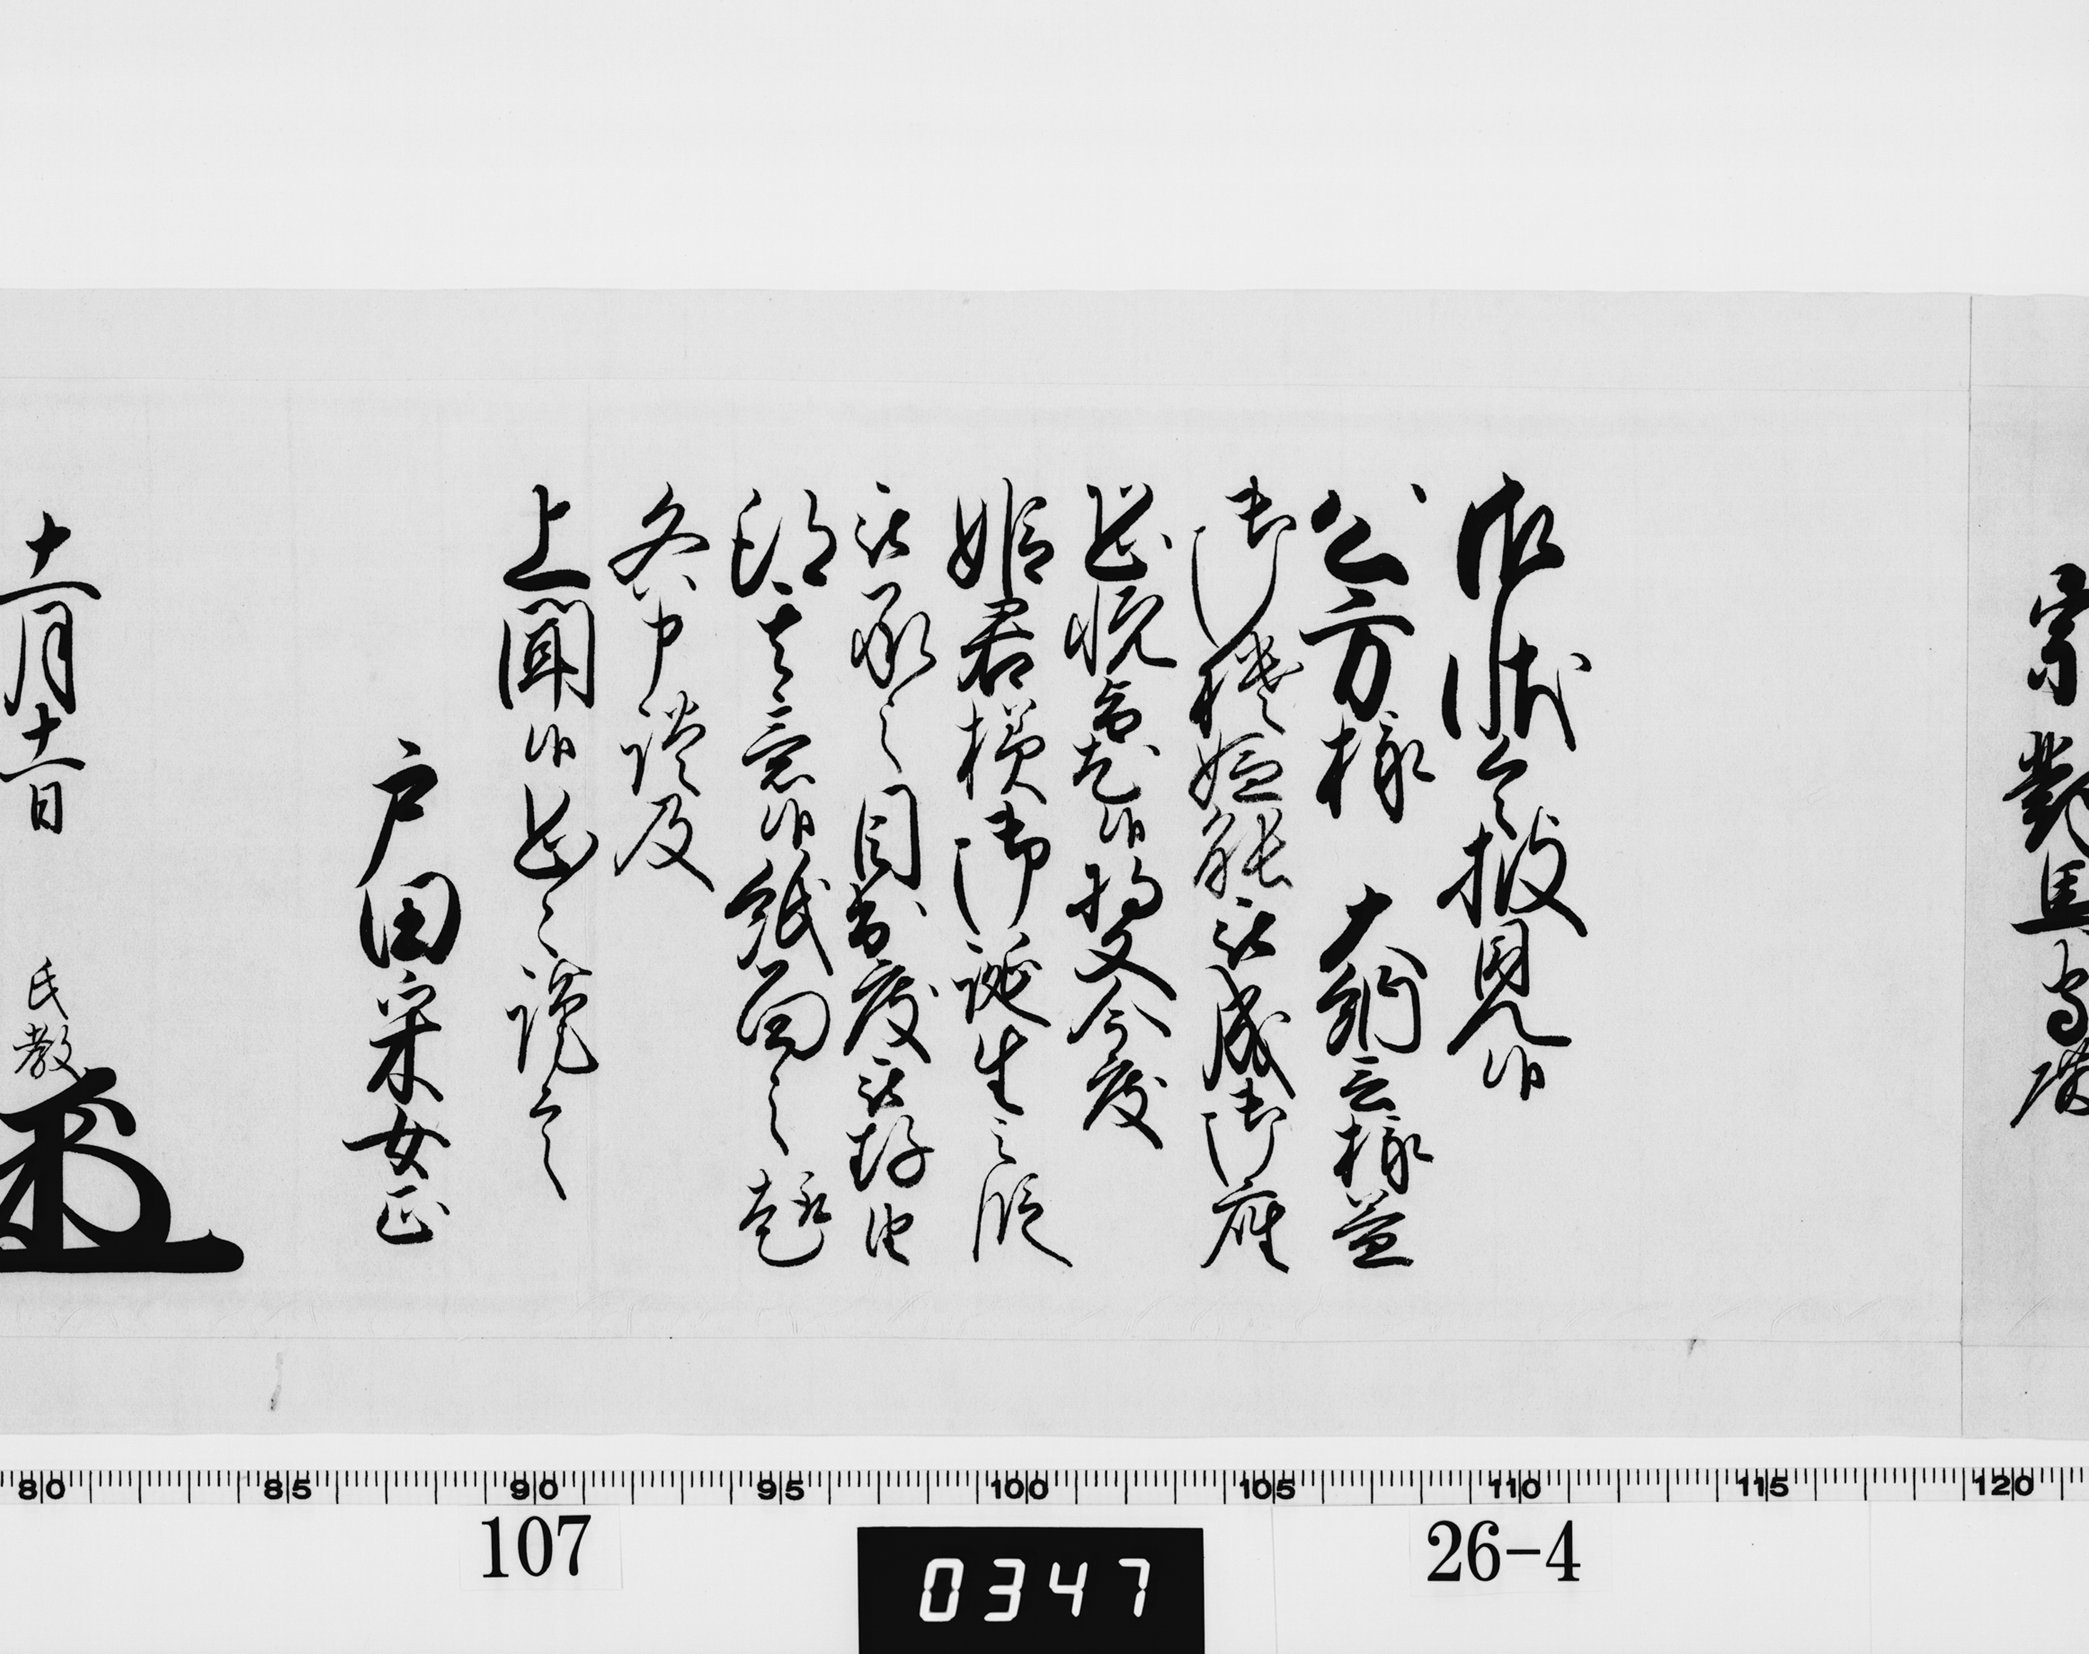 宗對馬守殿
御状令披見候
公方様 大納言様益
御機嫌能被成御座
恐悦旨尤候将又今度
姫君様御誕生之段
被承之目出度被存由
得其意候紙面之趣
各申談及
上聞候恐々謹言
戸田采女正
十一月十一日 氏教
80 85 90 95 100 105 110 115 120
107 0347 26-4